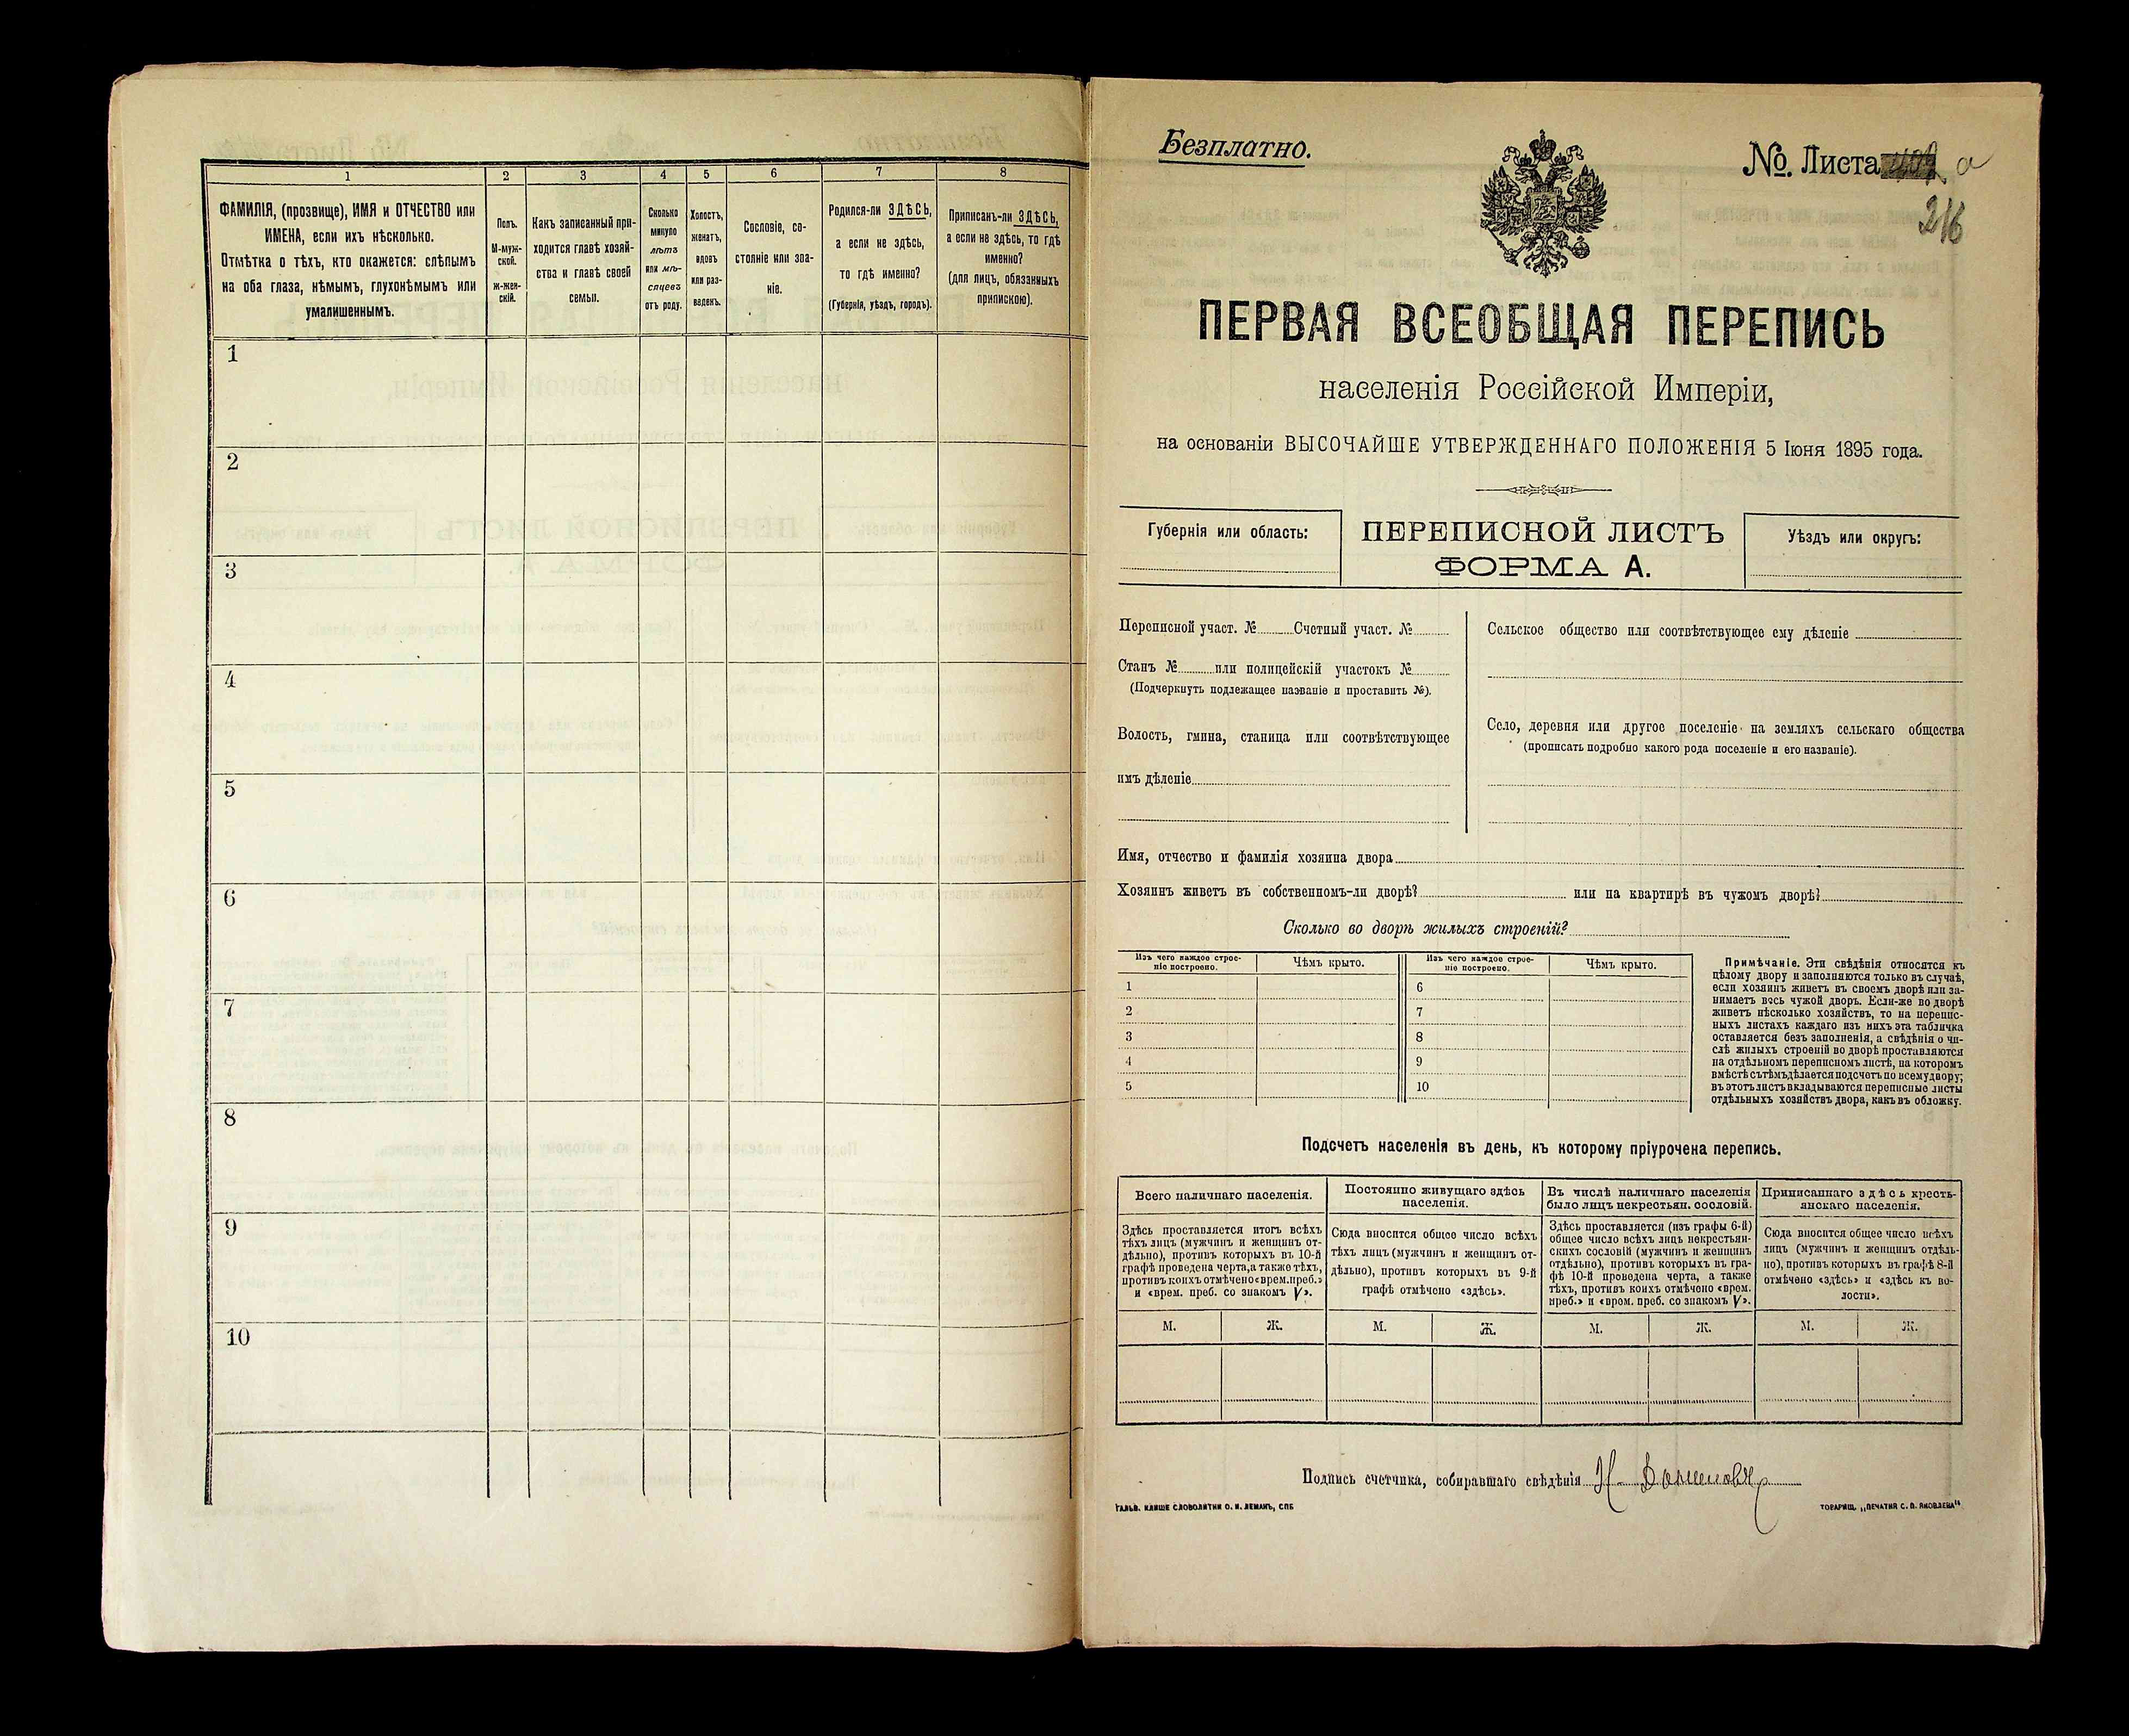 1
2
3
4
5
6
7
8
ФАМИЛІЯ, (прозвище), ИМЯ и ОТЧЕСТВО или
ИМЕНА, если ихъ нѣсколько.
Отмѣтка о тѣхъ, кто окажется: слѣпымъ
на оба глаза, нѣмымъ, глухонѣмымъ или
умалишеннымъ.
Полъ.
М-муж-
ской.
ж-жен-
скій.
Какъ записанный при-
ходится главѣ хозяй-
ства и главѣ своей
семьи.
Сколько
минуло
лѣтъ
или мѣ-
сяцевъ
отъ роду.
Холостъ,
женатъ,
вдовъ
или раз-
веденъ.
Сословіе, со-
стояніе или зва-
ніе.
Родился-ли ЗДѢСЬ,
а если не здѣсь,
то гдѣ именно?
(Губернія, уѣздъ, городъ).
Приписанъ-ли ЗДѢСЬ,
а если не здѣсь, то гдѣ
именно?
(для лицъ, обязанныхъ
припискою).
1
2
3
4
5
6
7
8
9
10
Безплатно.
№. Листа а
216
ПЕРВАЯ ВСЕОБЩАЯ ПЕРЕПИСЬ
населенія Россійской Имперіи,
на основаніи ВЫСОЧАЙШЕ УТВЕРЖДЕННАГО ПОЛОЖЕНІЯ 5 Іюня 1895 года.
Губернія или область:
ПЕРЕПИСНОЙ ЛИСТЪ
ФОРМА А.
Уѣздъ или округъ:
Переписной участ. № Счетный участ. №
Станъ № или полицейскій участокъ №
(Подчеркнуть подлежащее названіе и проставить №).
Волость, гмина, станица или соотвѣтствующее
имъ дѣленіе
Сельское общество или соотвѣтствующее ему дѣленіе
Село, деревня или другое поселеніе на земляхъ сельскаго общества
(прописать подробно какого рода поселеніе и его названіе).
Имя, отчество и фамилія хозяина двора
Хозяинъ живетъ въ собственномъ-ли дворѣ? или на квартирѣ въ чужомъ дворѣ?
Сколько во дворѣ жилыхъ строеній?
Изъ чего каждое строе-
ніе построено.
Чѣмъ крыто.
Изъ чего каждое строе-
ніе построено.
Чѣмъ крыто.
1
2
3
4
5
6
7
8
9
10
Примѣчаніе. Эти свѣдѣнія относятся къ
цѣлому двору и заполняются только въ случаѣ,
если хозяинъ живетъ въ своемъ дворѣ или за-
нимаетъ весь чужой дворъ. Если-же во дворѣ
живетъ нѣсколько хозяйствъ, то на перепис-
ныхъ листахъ каждаго изъ нихъ эта табличка
оставляется безъ заполненія, а свѣдѣнія о чи-
слѣ жилыхъ строеній во дворѣ проставляются
на отдѣльномъ переписномъ листѣ, на которомъ
вмѣстѣ съ тѣмъ дѣлается подсчетъ по всему двору;
въ этотъ листъ вкладываются переписные листы
отдѣльныхъ хозяйствъ двора, какъ въ обложку.
Подсчетъ населенія въ день, къ которому пріурочена перепись.
Всего наличнаго населенія.
Здѣсь проставляется итогъ всѣхъ
тѣхъ лицъ (мужчинъ и женщинъ от-
дѣльно), противъ которыхъ въ 10-й
графѣ проведена черта, а также тѣхъ,
противъ коихъ отмѣчено «врем. преб.»
и «врем. преб. со знакомъ V».
Постоянно живущаго здѣсь
населенія.
Сюда вносится общее число всѣхъ
тѣхъ лицъ (мужчинъ и женщинъ от-
дѣльно), противъ которыхъ въ 9-й
графѣ отмѣчено «здѣсь».
Въ числѣ наличнаго населенія
было лицъ некрестьян. сословій.
Здѣсь проставляется (изъ графы 6-й)
общее число всѣхъ лицъ некрестьян-
скихъ сословій (мужчинъ и женщинъ
отдѣльно), противъ которыхъ въ гра-
фѣ 10-й проведена черта, а также
тѣхъ, противъ коихъ отмѣчено «врем.
преб.» и «врем. преб. со знакомъ V».
Приписаннаго здѣсь кресть-
янскаго населенія.
Сюда вносится общее число всѣхъ
лицъ (мужчинъ и женщинъ отдѣль-
но), противъ которыхъ въ графѣ 8-й
отмѣчено «здѣсь» и «здѣсь къ во-
лости».
М. Ж. М. Ж. М. Ж. М. Ж.
Подпись счетчика, собиравшаго свѣдѣнія
ГАЛЬВ. КЛИШЕ СЛОВОЛИТНИ О. И. ЛЕМАНЪ, СПБ
ТОВАРИЩ. „ПЕЧАТНЯ С. П. ЯКОВЛЕВА"